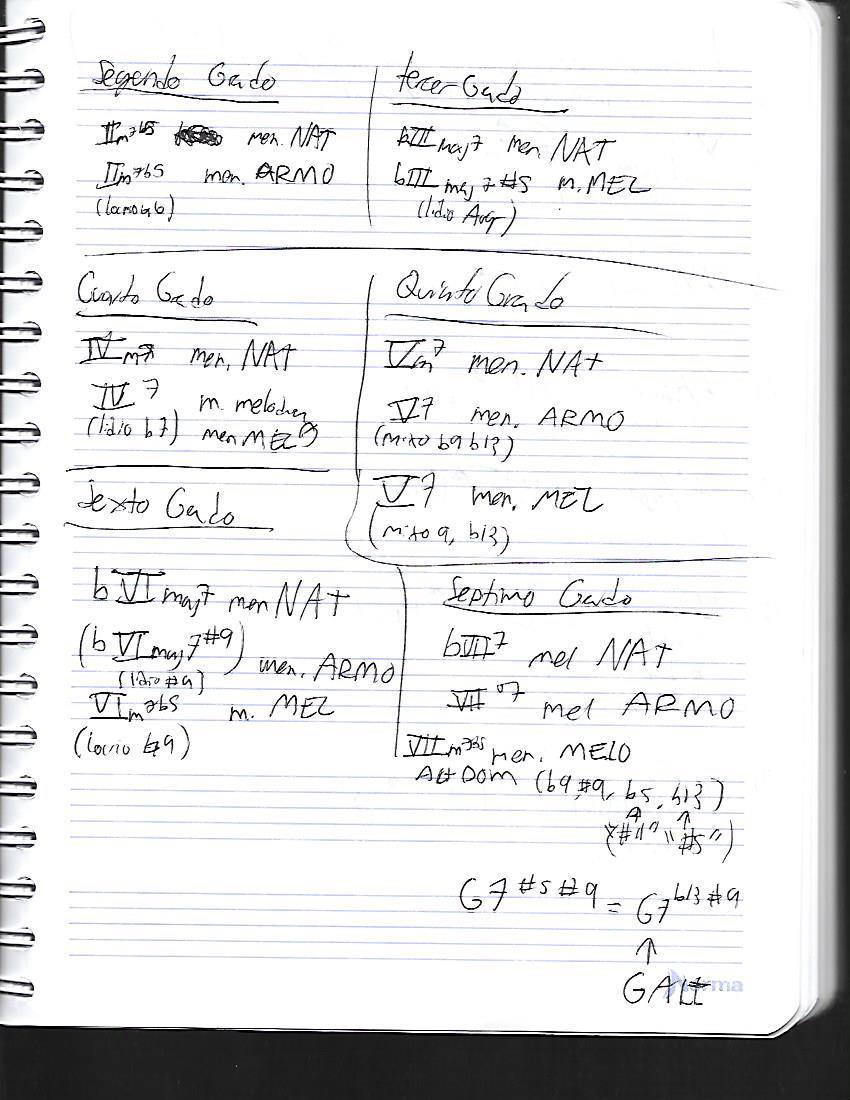 Segundo Grado
IIm7b5 men. NAT
IIm7b5 men. ARMO
tercer Grado
bIII maj7 men. NAT
bIII maj7 #5 m. MEL
(lidio Aug)
Cuarto Grado
IVm7 men. NAT
IV7 m. melodica
(lidio b7) men MEL
Quinto Grado
Vm7 men. NAt
V7 men. ARMO
(mixo b9 b13)
V7 men. MEL
(mixo 9, b13)
Sexto Grado
bVI maj7 men NAT
(bVI maj7 #9) men. ARMO
(lidio #9)
VIm7b5 m. MEL
(locrio ♮9)
Septimo Grado
bVII7 mel NAT
VII°7 mel ARMO
VIIm7b5 men. MELO
Alt DOM (b9, #9, b5, b13)
("#11" "#5")
G7 #5 #9 = G7 b13 #9
↑
GALT
Norma